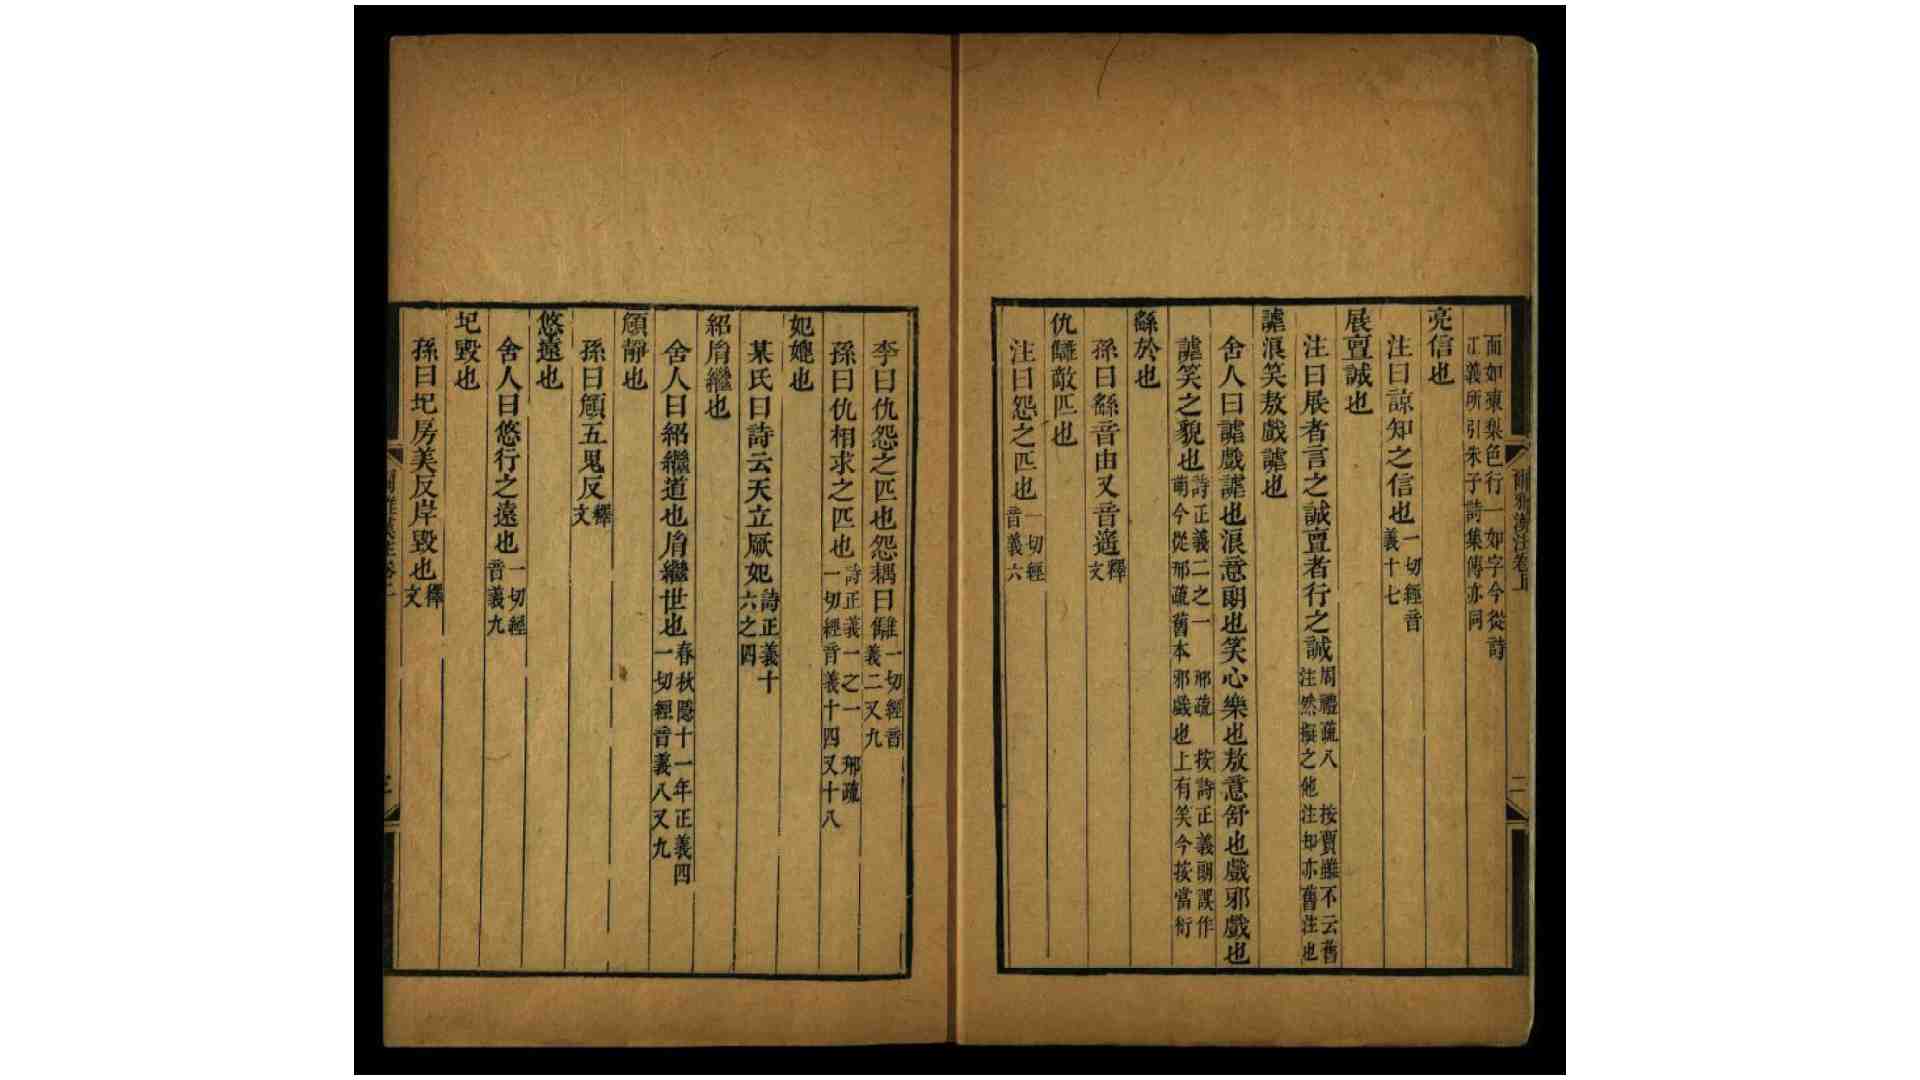 面如凍梨色行一如字今從詩
江義所引朱子詩集傳亦同
亮信也
注曰諒知之信也一切經音
義十七
展亶誠也
注曰展者言之誠亶者行之誠周禮疏八 按賈雖不云舊
注然擬之他注知亦舊注也
謔浪笑敖戲謔也
舍人曰謔戲謔也浪意朗也笑心樂也敖意舒也戲邪戲也
謔笑之貌也詩正義二之一 邢疏 按詩正義朗誤作
萌今從邢疏舊本邪戲也上有笑今按當衍
繇於也
孫曰繇音由又音遙釋
文
仇讎敵匹也
注曰怨之匹也一切經
音義六
李曰仇怨之匹也怨耦曰讎一切經音
義二又九
孫曰仇相求之匹也詩正義一之一 邢疏
一切經音義十四又十八
妃媲也
某氏曰詩云天立厥妃詩正義十
六之四
紹胤繼也
舍人曰紹繼道也胤繼世也春秋隱十一年正義四
一切經音義八又九
頠靜也
孫曰頠五鬼反釋
文
悠遠也
舍人曰悠行之遠也一切經
音義九
圮毀也
孫曰圮房美反岸毀也釋
文
爾雅漢注卷上
二